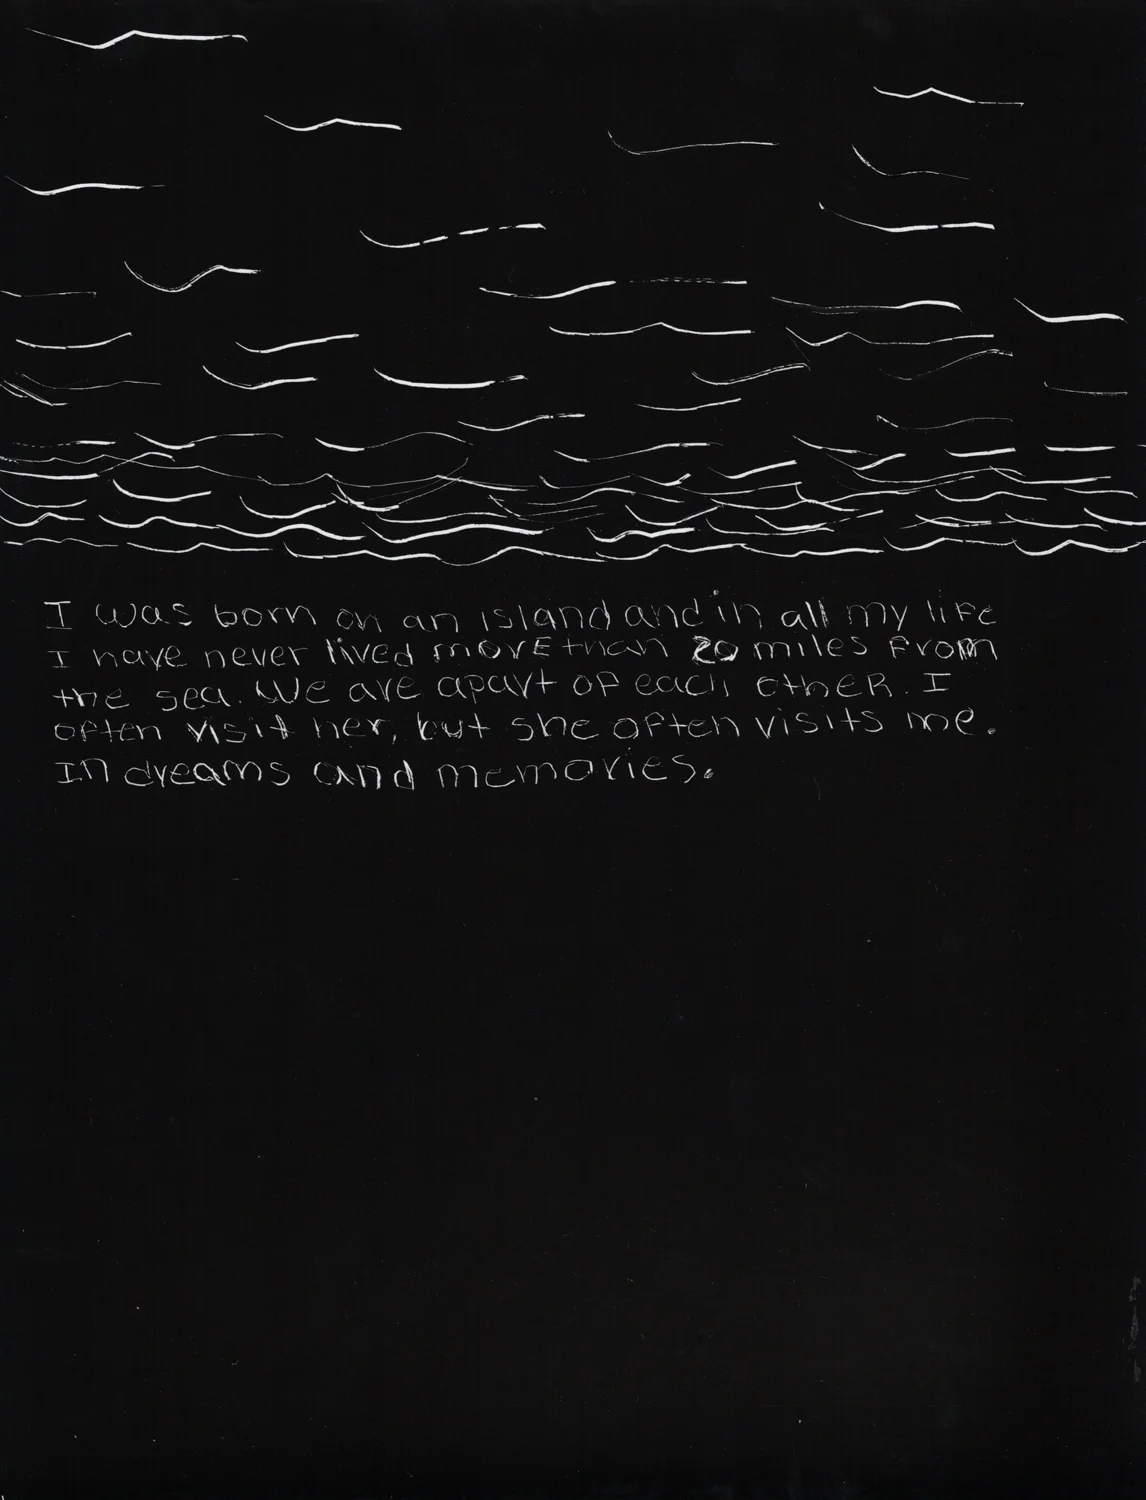 I was born on an island and in all my life
I have never lived morE than 20 miles from
the sea. We are apart of each otheR. I
often visit her, but she often visits me.
In dreams and memories.